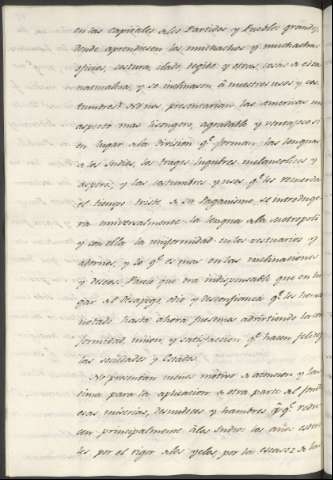 en las capitales de los Partidos y Pueblos grandes,
donde aprendiesen los muchachos y muchachas
oficios, costura, ilado, tegido y otras cosas a esta
naturaleza, y se inclinasen á nuestros usos y cos
tumbres? Se nos presentarian las Americas un
aspecto mas lisongero, agradable y ventajoso si
en lugar de la division qe. forman las lenguas
de los Indios, los trages lugubres melancolicos y
y las costumbres y usos qe. les recuerda
el tiempo triste de su Paganismo, se introduge
ra universalmente la lengua de la metropoli
y con ella la uniformidad en los vestuarios y
adornos, y lo qe. es mas en las inclinaciones
y deseos. Paso que era indispensable que en lu
gar del desapego, odio y desconfianza qe. les hemos
notado hasta ahora, fuesemos advirtiendo la con
formidad, union, y satisfaccion qe. hacen felices
las sociedades y Estados.
No presentan menos motivo de atencion y las
tima para la aplicacion de otra parte del fondo
esas miserias, desnudeces y hambres qe.
principalmente los Indios los años este
les por el rigor de los yelos, por la escasez de las